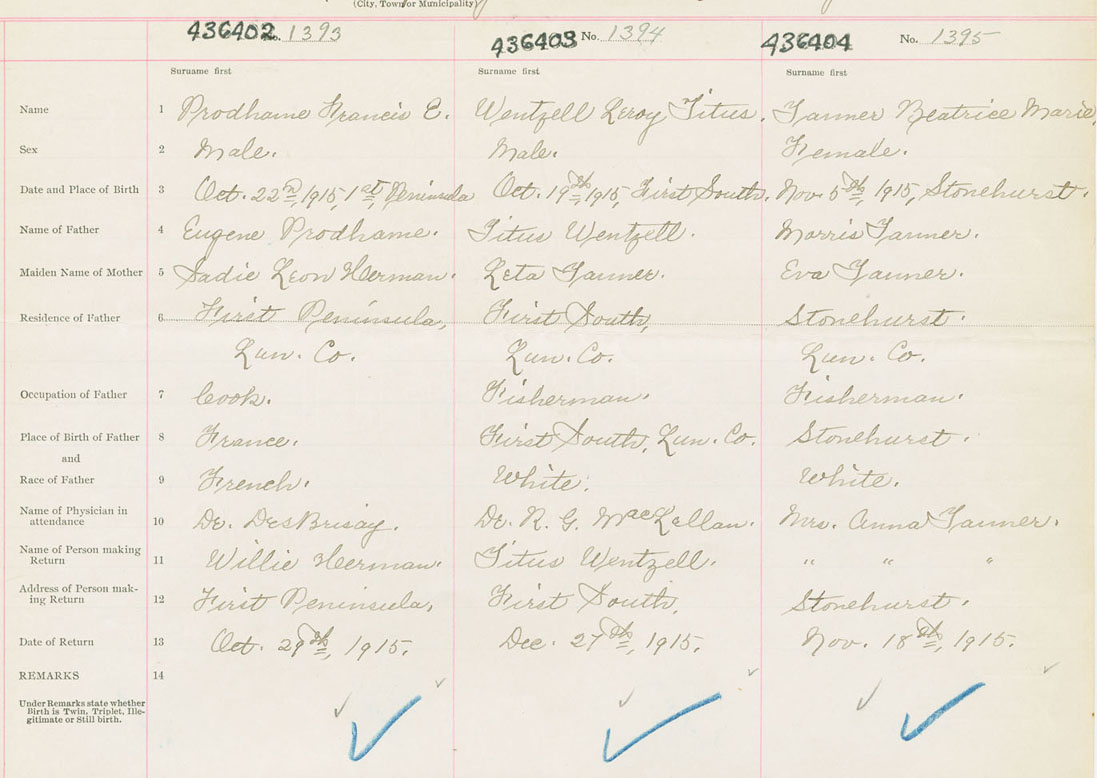 (City, Town or Municipality)
436402 No. 1393 436403 No. 1394 436404 No. 1395
Surname first Surname first Surname first
Name 1 Prodhame Francis E. Wentzell Leroy Titus. Tanner Beatrice Marie.
Sex 2 Male. Male. Female.
Date and Place of Birth 3 Oct. 22nd, 1915, 1st, Peninsula Oct. 19th, 1915, First South. Nov. 5th, 1915, Stonehurst.
Name of Father 4 Eugene Prodhame. Titus Wentzell. Morris Tanner.
Maiden Name of Mother 5 Sadie Leon Herman. Leta Tanner. Eva Tanner.
Residence of Father 6 First Peninsula, First South, Stonehurst.
Lun. Co. Lun. Co. Lun. Co.
Occupation of Father 7 Cook. Fisherman. Fisherman.
Place of Birth of Father 8 France. First South, Lun. Co. Stonehurst.
and
Race of Father 9 French. White. White.
Name of Physician in
attendance 10 Dr. DesBrisay. Dr. R. G. MacLellan. Mrs. Anna Tanner.
Name of Person making
Return 11 Willie Herman. Titus Wentzell. " " "
Address of Person mak-
ing Return 12 First Peninsula, First South, Stonehurst.
Date of Return 13 Oct. 29th, 1915. Dec. 27th, 1915. Nov. 18th, 1915.
REMARKS 14
Under Remarks state whether
Birth is Twin, Triplet, Ille-
gitimate or Still birth.